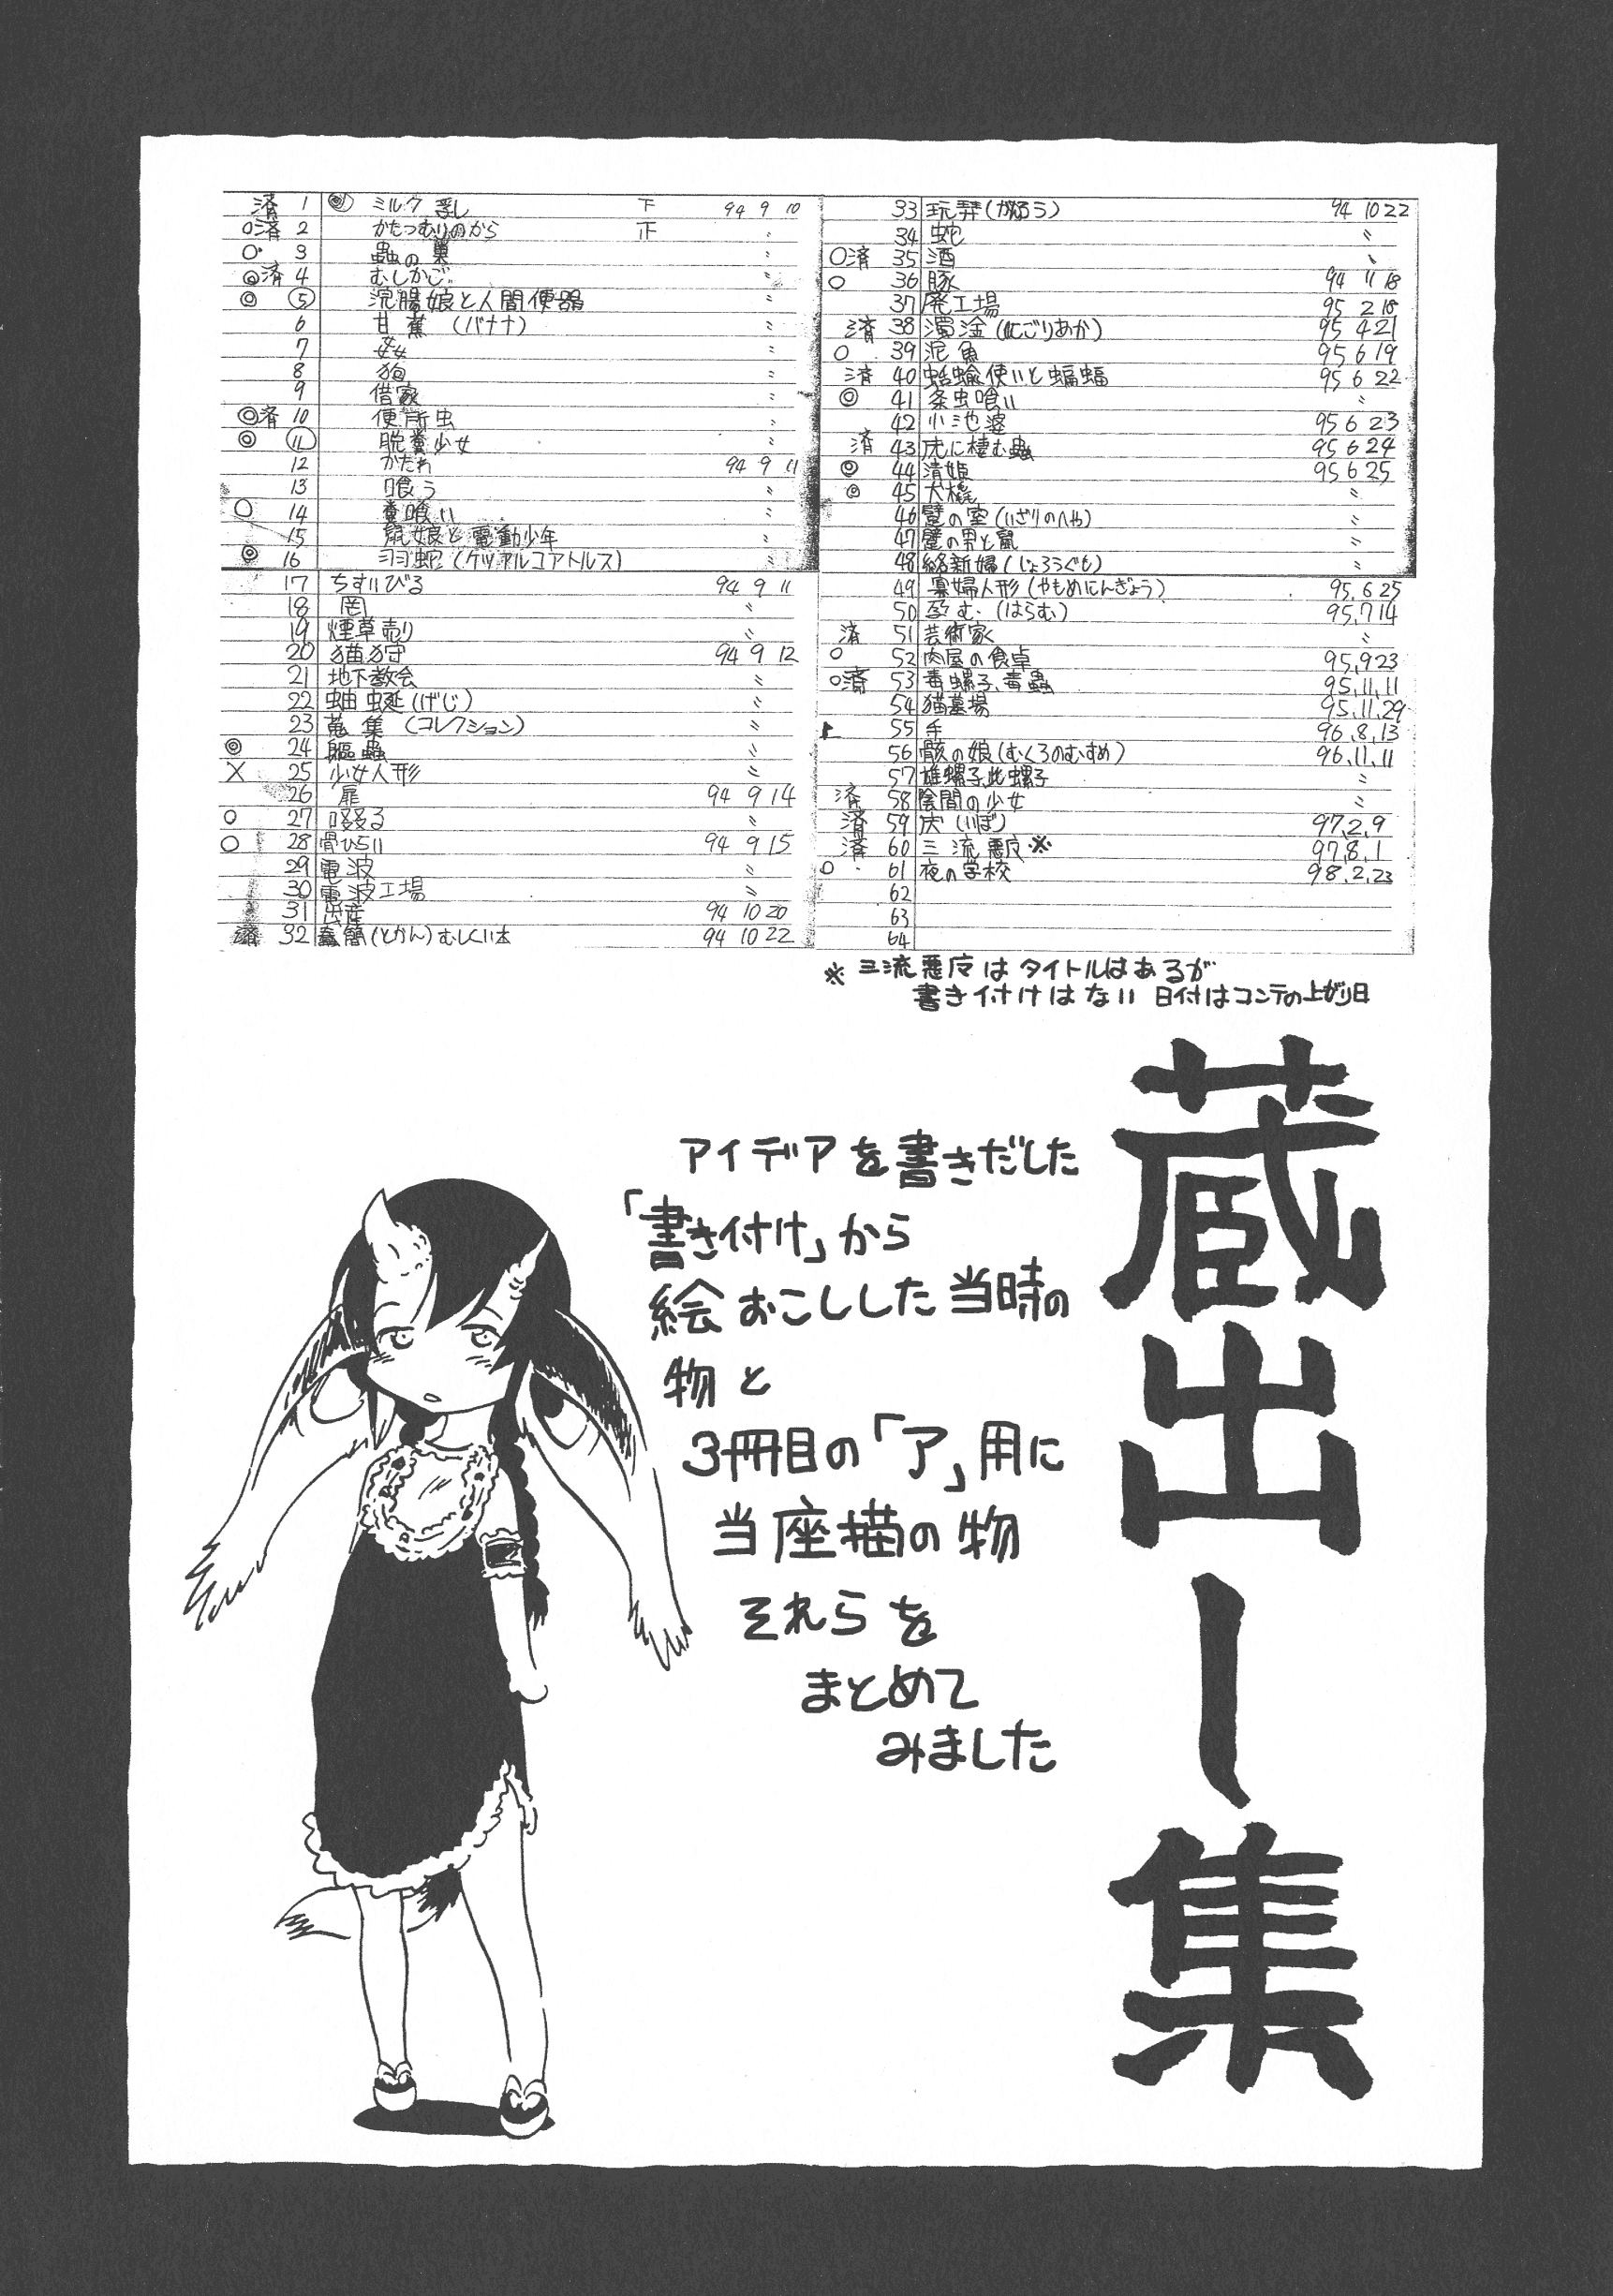 済 1 ◎ ミルク 乳し 下 94 9 10
○済 2 かたつむりのから 正 〃
○ 3 蟲の巣 〃
◎済 4 むしかご 〃
◎ ⑤ 浣腸娘と人間便器 〃
6 甘蕉 (バナナ) 〃
7 姦 〃
8 狗 〃
9 借家 〃
◎済 10 便所虫 〃
◎ ⑪ 脱糞少女 〃
12 かたわ 94 9 11
13 喰う 〃
○ 14 糞喰い 〃
15 鼠娘と電動少年 〃
◎ 16 羽蛇 (ケツァルコアトルス) 〃
17 ちすいびる 94 9 11
18 〃
19 煙草売り 〃
20 猫狩 94 9 12
21 地下教会 〃
22 蚰蜒 (げじ) 〃
23 蒐集 (コレクション) 〃
◎ 24 軀蟲 〃
× 25 少女人形 〃
26 扉 94 9 14
○ 27 啜る 〃
○ 28 骨ひろい 94 9 15
29 電波 〃
30 電波工場 〃
31 出産 94 10 20
済 32 蠹簡 (とかん) むしくい本 94 10 22
33 玩弄 (がろう) 94 10 22
34 蛇 〃
○済 35 酒 〃
○ 36 豚 94 11 18
37 廃工場 95 2 18
済 38 濁淦 (にごりあか) 95 4 21
○ 39 泥魚 95 6 19
済 40 蛞蝓使いと蝙蝠 95 6 22
◎ 41 条虫喰い 〃
42 小池婆 95 6 23
済 43 虎に棲む蟲 95 6 24
◎ 44 清姫 95 6 25
◎ 45 犬橇 〃
46 躄の室 (いざりのへや) 〃
47 躄の男と鼠 〃
48 絡新婦 (じょろうぐも) 〃
49 寡婦人形 (やもめにんぎょう) 95.6 25
50 孕む (はらむ) 95.7 14
済 51 芸術家 〃
○ 52 肉屋の食卓 95.9 23
○済 53 毒螺子、毒蟲 95.11.11
54 猫墓場 95.11.29
55 手 96.8.13
56 骸の娘 (むくろのむすめ) 96.11.11
57 雄螺子、雌螺子 〃
済 58 陰間の少女 〃
済 59 疣 (いぼ) 97.2.9
済 60 三流悪皮 ※ 97.8.1
○ 61 夜の学校 98.2.23
62
63
64
※ 三流悪皮は タイトルはあるが
書き付けはない 日付はコンテの上がり日
蔵出し集
アイデアを書きだした
「書き付け」から
絵おこしした当時の
物と
3冊目の「ア」用に
当座描の物
それらを
まとめて
みました